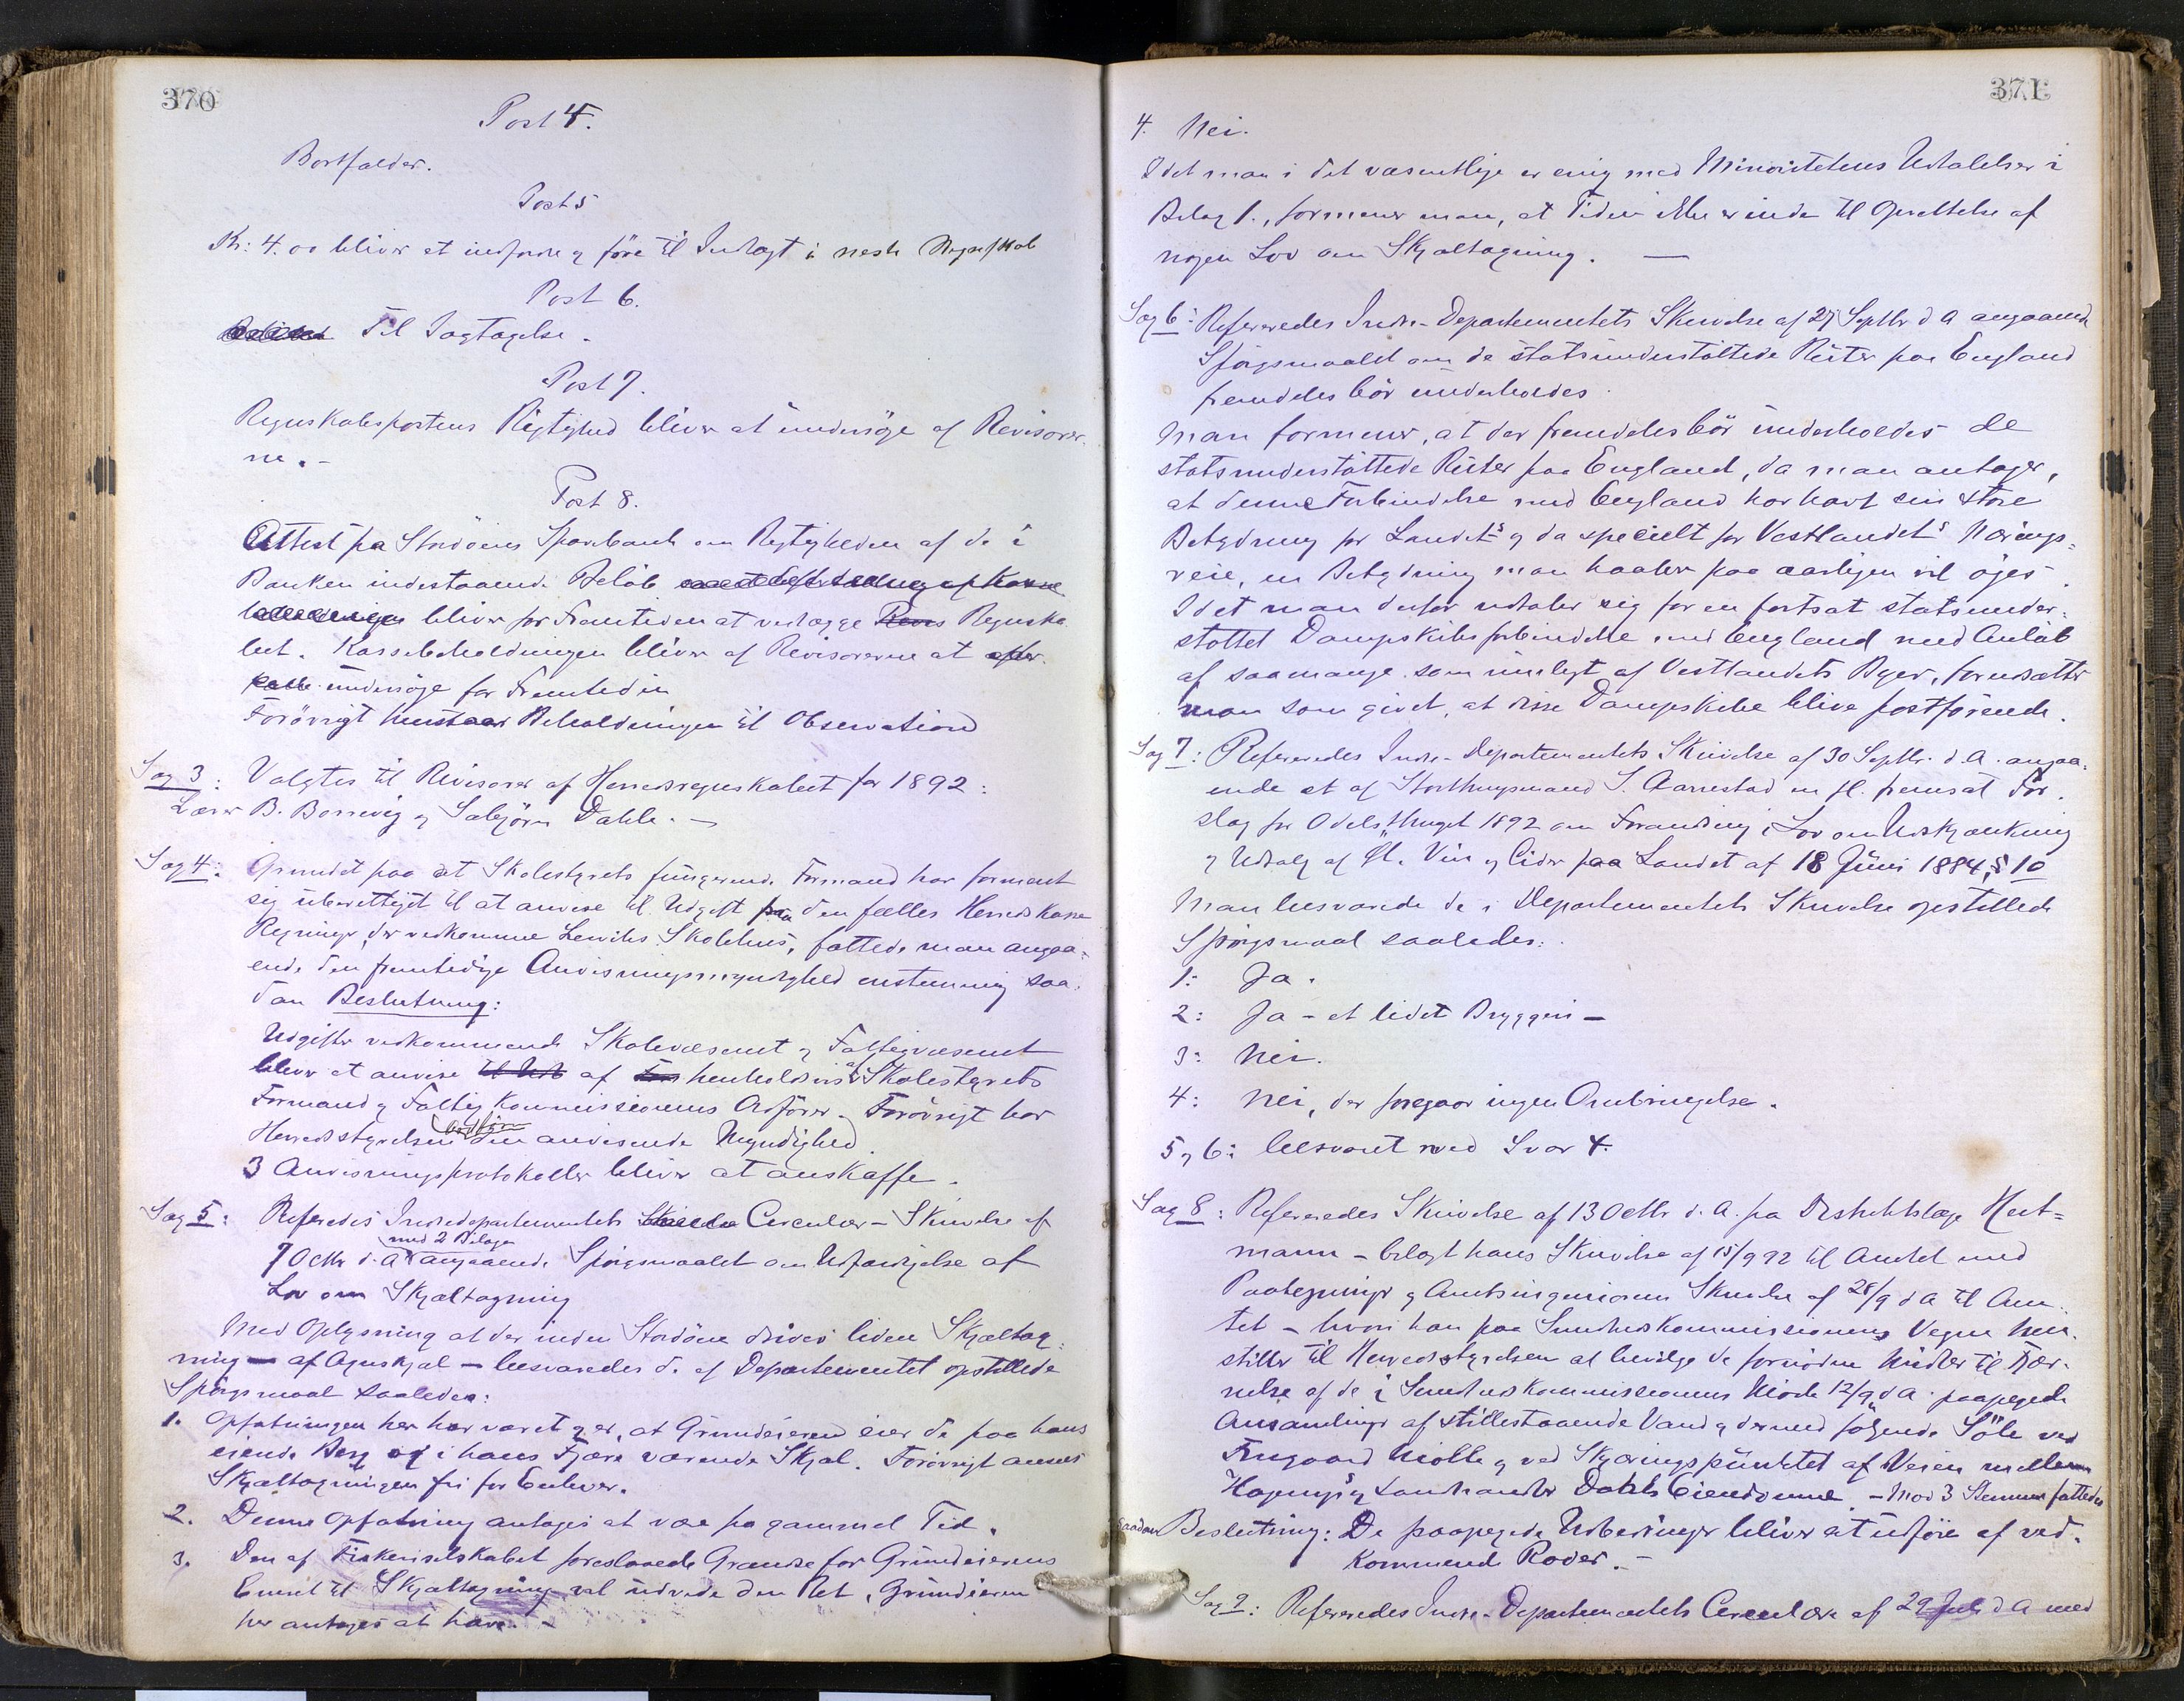 370
Post 4.
Bortfalder.
Post 5
Kr: 4.00 bliver at indfordre og føre til Indtægt i neste Regnskab
Post 6.
Til Iagtagelse.
Post 7.
Regnskabspostens Rigtighed bliver at undersøge af Revisorer-
ne. -
Post 8.
Attest fra Stordöens Sparebank om Rigtigheden af de i
Banken indestaaende Beløb
bliver for Fremtiden at vedlægge Regnska-
bet. Kassebeholdningen bliver af Revisorerne at
undersöge for Fremtiden
Forövrigt Beholdningen til Observation
Sag 3: Valgtes til Revisorer af Herredsregnskabet for 1892:
Lærer B. Borrevig og Sæbjörn Dahle. -
Sag 4: Grundet paa at Skolestyrets fungerende Formand har forment
sig uberettiget til at anvise til Udgift fra den fælles Herredskasse
Regninger, der vedkomme Lerviks Skolehus, fattede man angaa-
ende den fremtidige Anvisningsmyndighed enstemmig saa-
dan Beslutning:
Udgifter vedkommende Skolevæsenet og Fattigvæsenet
bliver at anvise af henholdsvis af Skolestyrets
Formand og Fattigkommissionens Ordfører. Forövrigt har
Herredsstyrelsens Ordförer den anvisende Myndighed
3 Anvisningsprotokoller bliver at anskaffe.
Sag 5: Referedes Indredepartementets Circulær-Skrivelse af
7 Octbr d.A. med 2 Bilage angaaende Spörgsmaalet om Udfærdigelse af
Lov om Skjæltagning
Med Oplysning at der inden Stordöen drives liden Skjæltag-
ning - af Agnskjæl - besvaredes de af Departementet opstillede
Spörgsmaal saaledes:
1. Opfatningen her har været og er, at Grundeieren eier de paa hans
eiende Berg og i hans Fjære værende Skjæl. Forövrigt ansees
Skjæltagningen fri for Enhver.
2. Denne Opfatning antages at være fra gammel Tid.
3. Den af Fiskeriselskabet foreslaaede Grændse for Grundeierens
Eneret til Skjæltagning vil udvide den Ret, Grundeieren
her antages at have. -
371
4. Nei.
Idet man i det væsentlige er enig med Minoritetens Udtalelser i
Bilag 1., formener man, at Tiden ikke er inde til Oprettelse af
nogen Lov om Skjæltagning. -
Sag 6: Refereredes Indre-Departementets Skrivelse af 27 Septbr d A angaaende
Spörgsmaalet om de statsunderstöttede Ruter paa England
fremdeles bör underholdes.
Man formener, at der fremdeles bör underholdes de
statsunderstöttede Ruter paa England, da man antager,
at denne Forbindelse med England har havt sin store
Betydning for Landets og da specielt for Vestlandets Nærings-
veie, en Betydning man haaber paa aarligen vil öges.
Idet man derfor udtaler sig for en fortsat statsunder-
stöttet Dampskibsforbindelse med England med Anløb
af saamange som muligt af Vestlandets Byer, forudsætter
man som givet, at disse Dampskibe blive postförende.
Sag 7: Refereredes Indre-Departementets Skrivelse af 30 Septbr. d.A. angaa-
ende et af Storthingsmand S. Aarrestad m fl. fremsat For-
slag for Odelsthinget 1892 om Forandring i Lov om Udskjænkning
og Udsalg af Øl, Vin og Cider paa Landet af 18 Juni 1884, § 10
Man besvarede de i Departementets Skrivelse opstillede
Spörgsmaal saaledes:
1: Ja.
2: Ja - et lidet Bryggeri -
3: Nei.
4: Nei, der foregaar ingen Ombringelse.
5 og 6: besvaret ved Svar 4.
Sag 8: Refereredes Skrivelse af 13 Octbr d.A. fra Distriktslæge Heit-
mann - bilagt hans Skrivelse af 15/9 92 til Amtet med
Paategninger og Amtsingeniörens Skrivelse af 28/9 d A til Am-
tet - hvori han paa Sundhedskommissionens Vegne hen-
stiller til Herredsstyrelsen at bevilge de fornödne Midler til Fjær-
nelse af de i Sundhedskommissionens Möde 12/9 d A paapegede
Ansamlinger af stillestaaende Vand og dermed fölgende Söle ved
Mölle og ved Skjæringspunktet af Veien mellem
og Landhandler Dahls Eiendomme. - Mod 3 Stemmer fattedes
saadan Beslutning: De paapegede Udbedringer bliver at udføre af ved-
kommende Roder. -
Sag 9: Refereredes Indre-Departementets Circulære af 29 Juli d A med